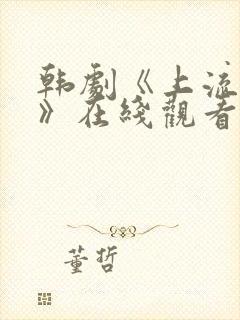 韩劇《上流
》在綫觀看
董哲